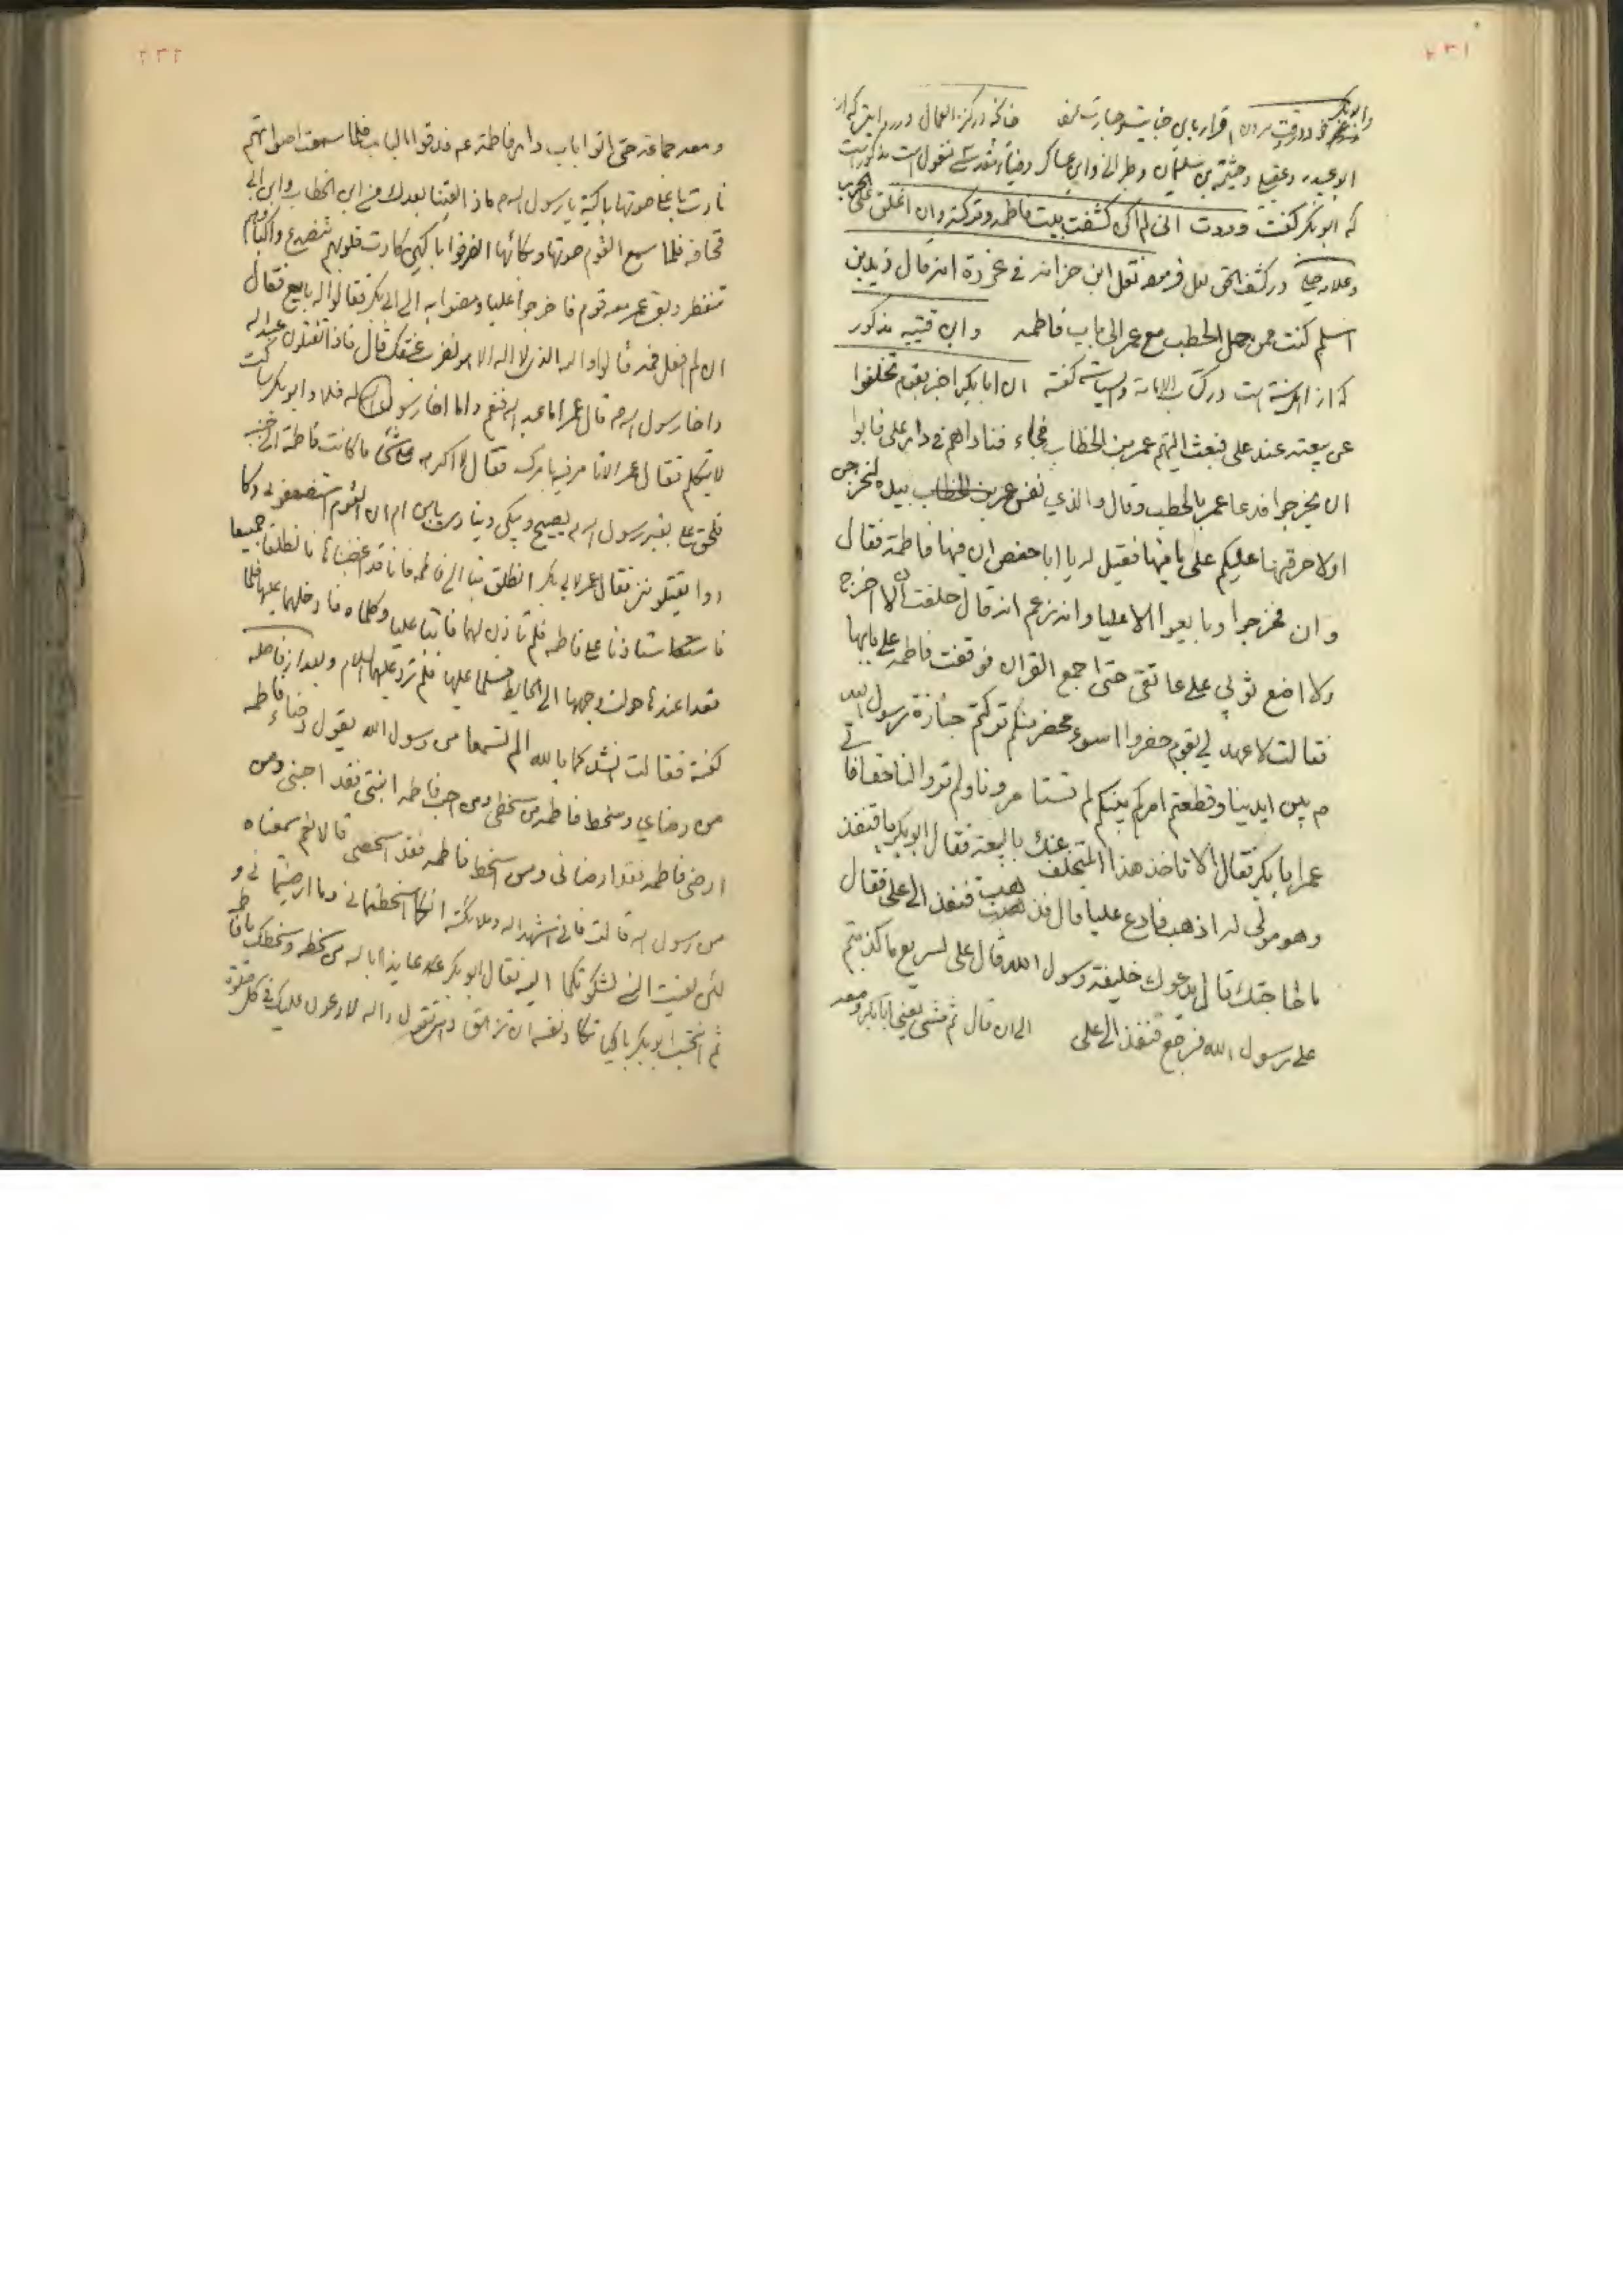 ٢٣١
وابوبکر در وقت مردن اقرار باین خیانت و جسارت نمود چنانکه در کنز العمال در روایتی که از
ابو عبید و عقیلی و خیثمة بن سلیمان و طبرانی و ابن عساکر و ضیاء مقدسی منقول است مذکور است
که ابوبکر گفت وددت انی لم اکن کشفت بیت فاطمه وترکته وان اغلق علی الحرب
وعلامه حلی در کشف الحق نقل فرموده نقل ابن خزانه فی غرره انه قال زید بن
اسلم کنت ممن حمل الحطب مع عمر الی باب فاطمه وابن قتیبه مذکور
که از اهل سنت است در کتاب الامامة والسیاسة گفته ان ابابکر اخبر بقوم تخلفوا
عن بیعته عند علی فبعث الیهم عمر بن الخطاب فجاء فناداهم فی دار علی فابوا
ان یخرجوا فدعا عمر بالحطب وقال والذی نفس عمر بن الخطاب بیده لتخرجن
اولاحرقنها علیکم علی ما فیها فقیل له یا ابا حفص ان فیها فاطمة فقال
وان فخرجوا وبایعوا الا علیا وانه زعم انه قال حلفت ان لا اخرج
ولا اضع ثوبی علی عاتقی حتی اجمع القران فوقفت فاطمه علی بابها
فقالت لا عهد لی بقوم حضروا اسوء محضر منکم ترکتم جنازة رسول الله
م بین ایدینا وقطعتم امرکم بینکم لم تستامرونا ولم تروا لنا حقا فاتی
عمر ابابکر فقال الا تاخذ هذا المتخلف عنک بالبیعة فقال ابوبکر یا قنفذ
وهو مولی له اذهب فادع علیا قال فذهب قنفذ الی علی فقال
ما حاجتک قال یدعوک خلیفة رسول الله قال علی لسریع ما کذبتم
علی رسول الله فرجع قنفذ الی علی الی ان قال ثم مشی یعنی ابابکر ومعه
٢٣٢
ومعه جماعة حتی اتوا باب دار فاطمة ع فدقوا الباب فلما سمعت اصواتهم
نادت باعلی صوتها باکیة یا رسول الله ماذا لقینا بعدک من ابن الخطاب وابن ابی
قحافه فلما سمع القوم صوتها وبکائها انصرفوا باکین وکادت قلوبهم تتصدع واکبادهم
تنفطر وبقی عمر معه قوم فاخرجوا علیا ومضوا به الی ابی بکر فقالوا له بایع فقال
ان لم افعل فمه قالوا والله الذی لا اله الا هو نضرب عنقک قال فاذا تقتلون عبد الله
واخا رسول الله قال عمر اما عبد الله فنعم واما اخا رسول الله فلا وابوبکر ساکت
لا یتکلم فقال عمر الا تامر فیه بامرک فقال لا اکرهه علی شیء ما کانت فاطمة الی جنبه
فلحق علی بقبر رسول الله یصیح ویبکی وینادی یابن ام ان القوم استضعفونی وکا
دوا یقتلوننی فقال عمر لابی بکر انطلق بنا الی فاطمه فانا قد اغضبناها فانطلقا جمیعا
فاستاذنا علی فاطمه فلم تاذن لهما فاتیا علیا وکلماه فادخلهما علیها فلما
قعدا عندها حولت وجهها الی الحایط فسلما علیها فلم ترد علیهما السلام وبعد از فاصله
گفته فقالت نشدتکما بالله الم تسمعا من رسول الله یقول رضاء فاطمه
من رضای وسخط فاطمه من سخطی ومن احب فاطمه ابنتی فقد احبنی ومن
ارضی فاطمه فقد ارضانی ومن اسخط فاطمه فقد اسخطنی قالا نعم سمعناه
من رسول الله قالت فانی اشهد الله وملائکته انکما اسخطتمانی وما ارضیتمانی و
لئن لقیت النبی لشکوتکما الیه فقال ابوبکر عه عایذا بالله من سخطه وسخطک یا فاطمه
ثم انتحب ابوبکر باکیا تکاد نفسه ان تزهق وهی تقول والله لادعون علیک فی کل صلوة